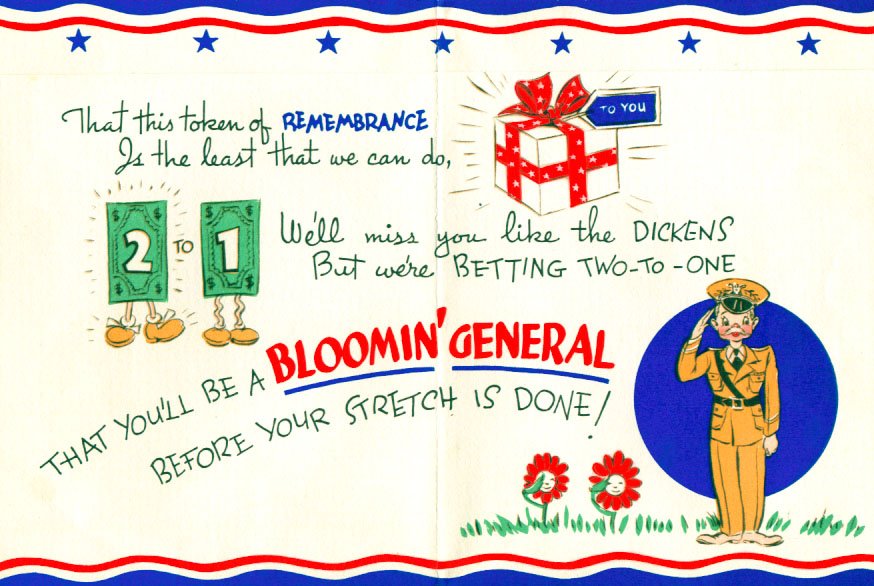 That this token of REMEMBRANCE
Is the least that we can do,
TO YOU
2 TO 1
We'll miss you like the DICKENS
But we're BETTING TWO-TO-ONE
THAT YOU'LL BE A BLOOMIN' GENERAL
BEFORE YOUR STRETCH IS DONE!